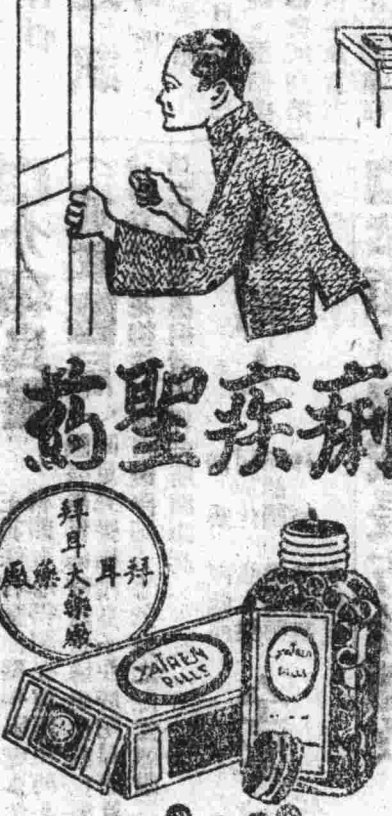 痢疾聖葯
拜耳大藥廠
拜耳大藥廠
YATREN
PILLS
Yatren
PILLS